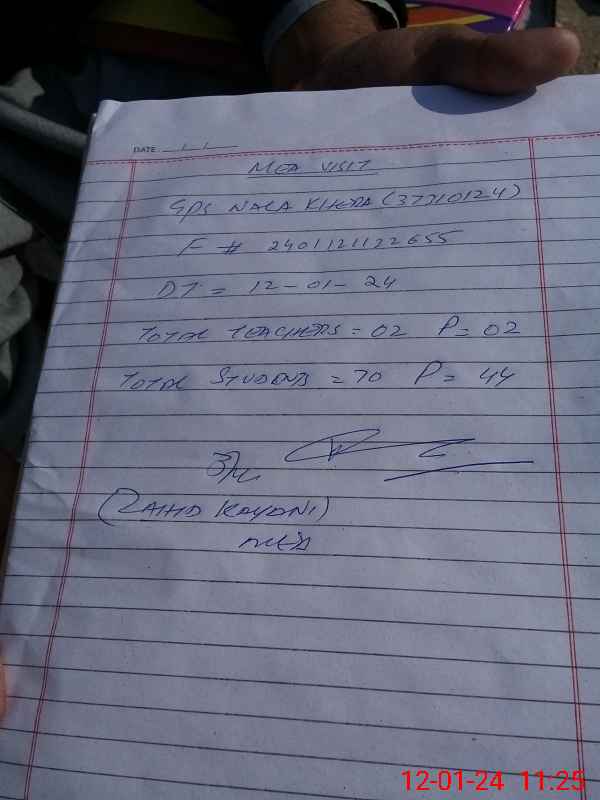 DATE
MEA VISIT
GPS NALA KHEDA (37310124)
F # 2401121122655
DT = 12-01-24
TOTAL TEACHERS = 02 P = 02
TOTAL STUDENTS = 70 P = 44
(ZAHID KAYONI)
MEA
12-01-24 11:25